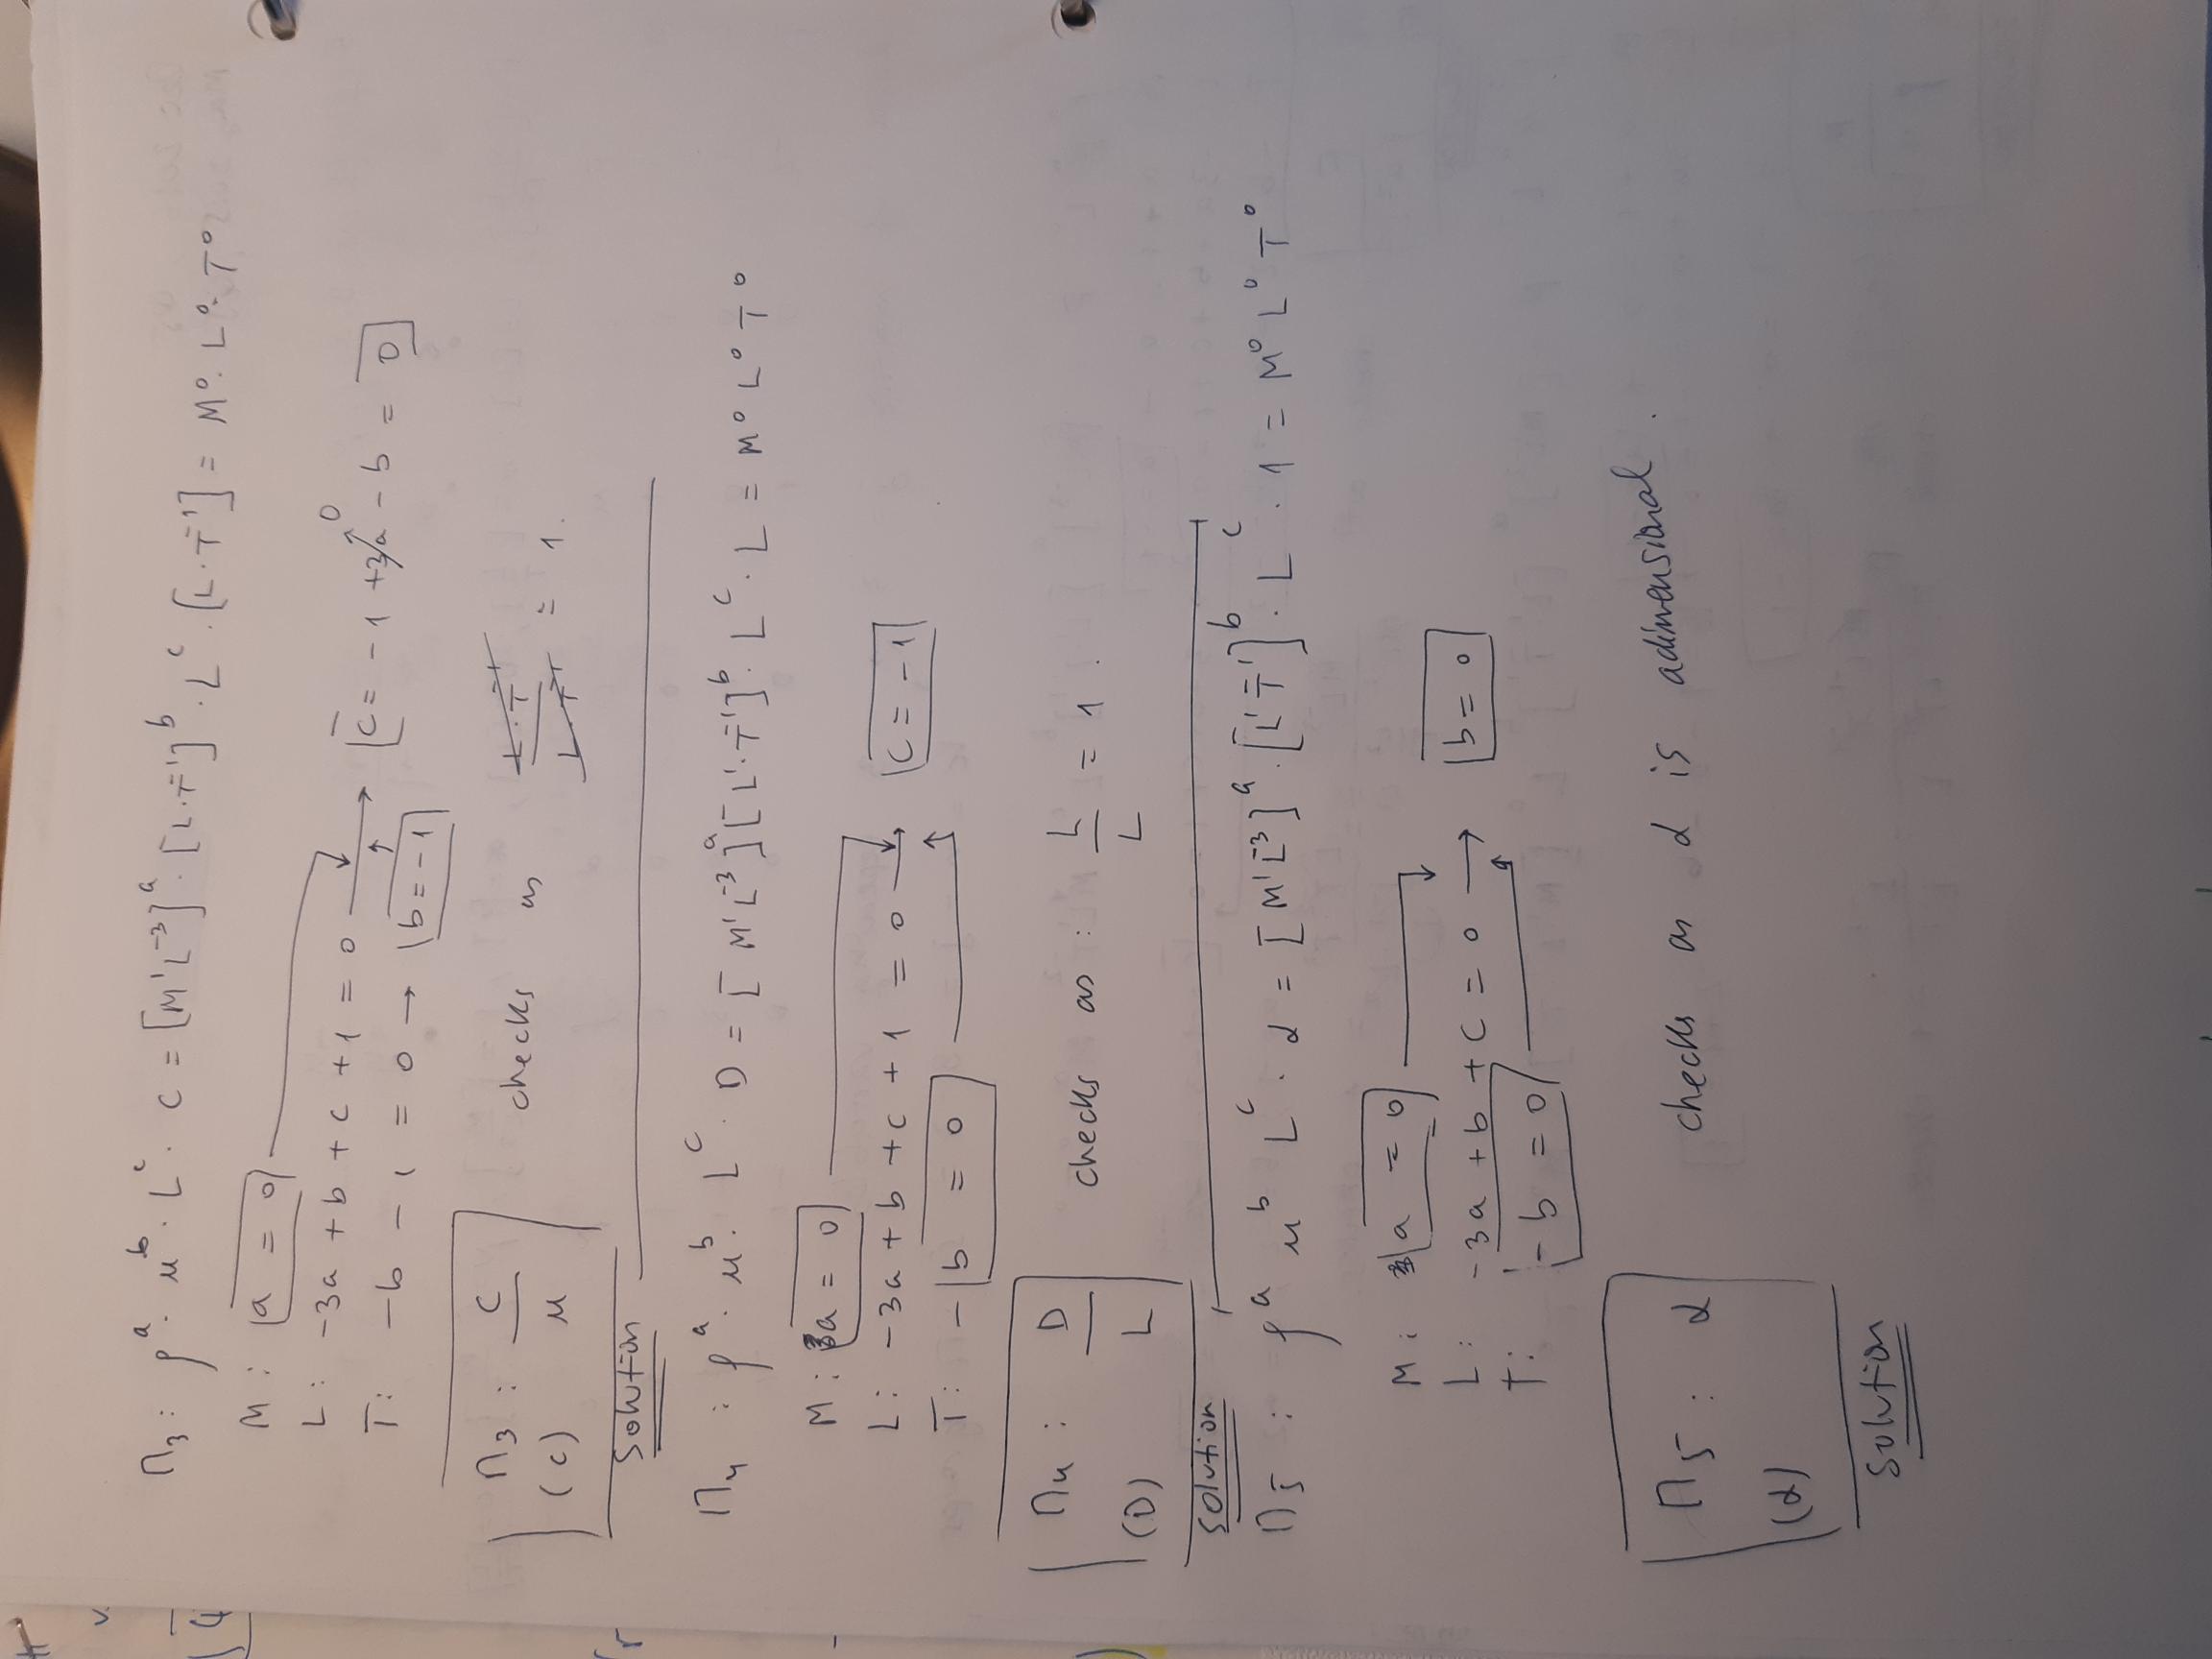 Π₃ : ρᵃ · uᵇ · Lᶜ · c = [M¹L⁻³]ᵃ · [L·T⁻¹]ᵇ · Lᶜ · [L·T⁻¹] = M⁰ · L⁰ · T⁰
M : a = 0
L : -3a + b + c + 1 = 0 → c = -1 +3a - b = 0
0
T : -b - 1 = 0 → b = -1
Π₃ : c / u checks as L·T⁻¹ / L·T⁻¹ = 1.
(c)
Solution
Π₄ : ρᵃ · uᵇ · Lᶜ · D = [M¹L⁻³]ᵃ [L¹·T⁻¹]ᵇ · Lᶜ · L = M⁰ L⁰ T⁰
M : a = 0
L : -3a + b + c + 1 = 0 → c = -1
T : -b = 0
Π₄ : D / L checks as : L / L = 1.
(D)
solution
Π5 : ρᵃ uᵇ Lᶜ · α = [M¹L⁻³]ᵃ · [L¹T⁻¹]ᵇ · Lᶜ · 1 = M⁰ L⁰ T⁰
M : a = 0
L : -3a + b + c = 0 → b = 0
T : -b = 0
Π5 : α checks as α is adimensional.
(α)
Solution